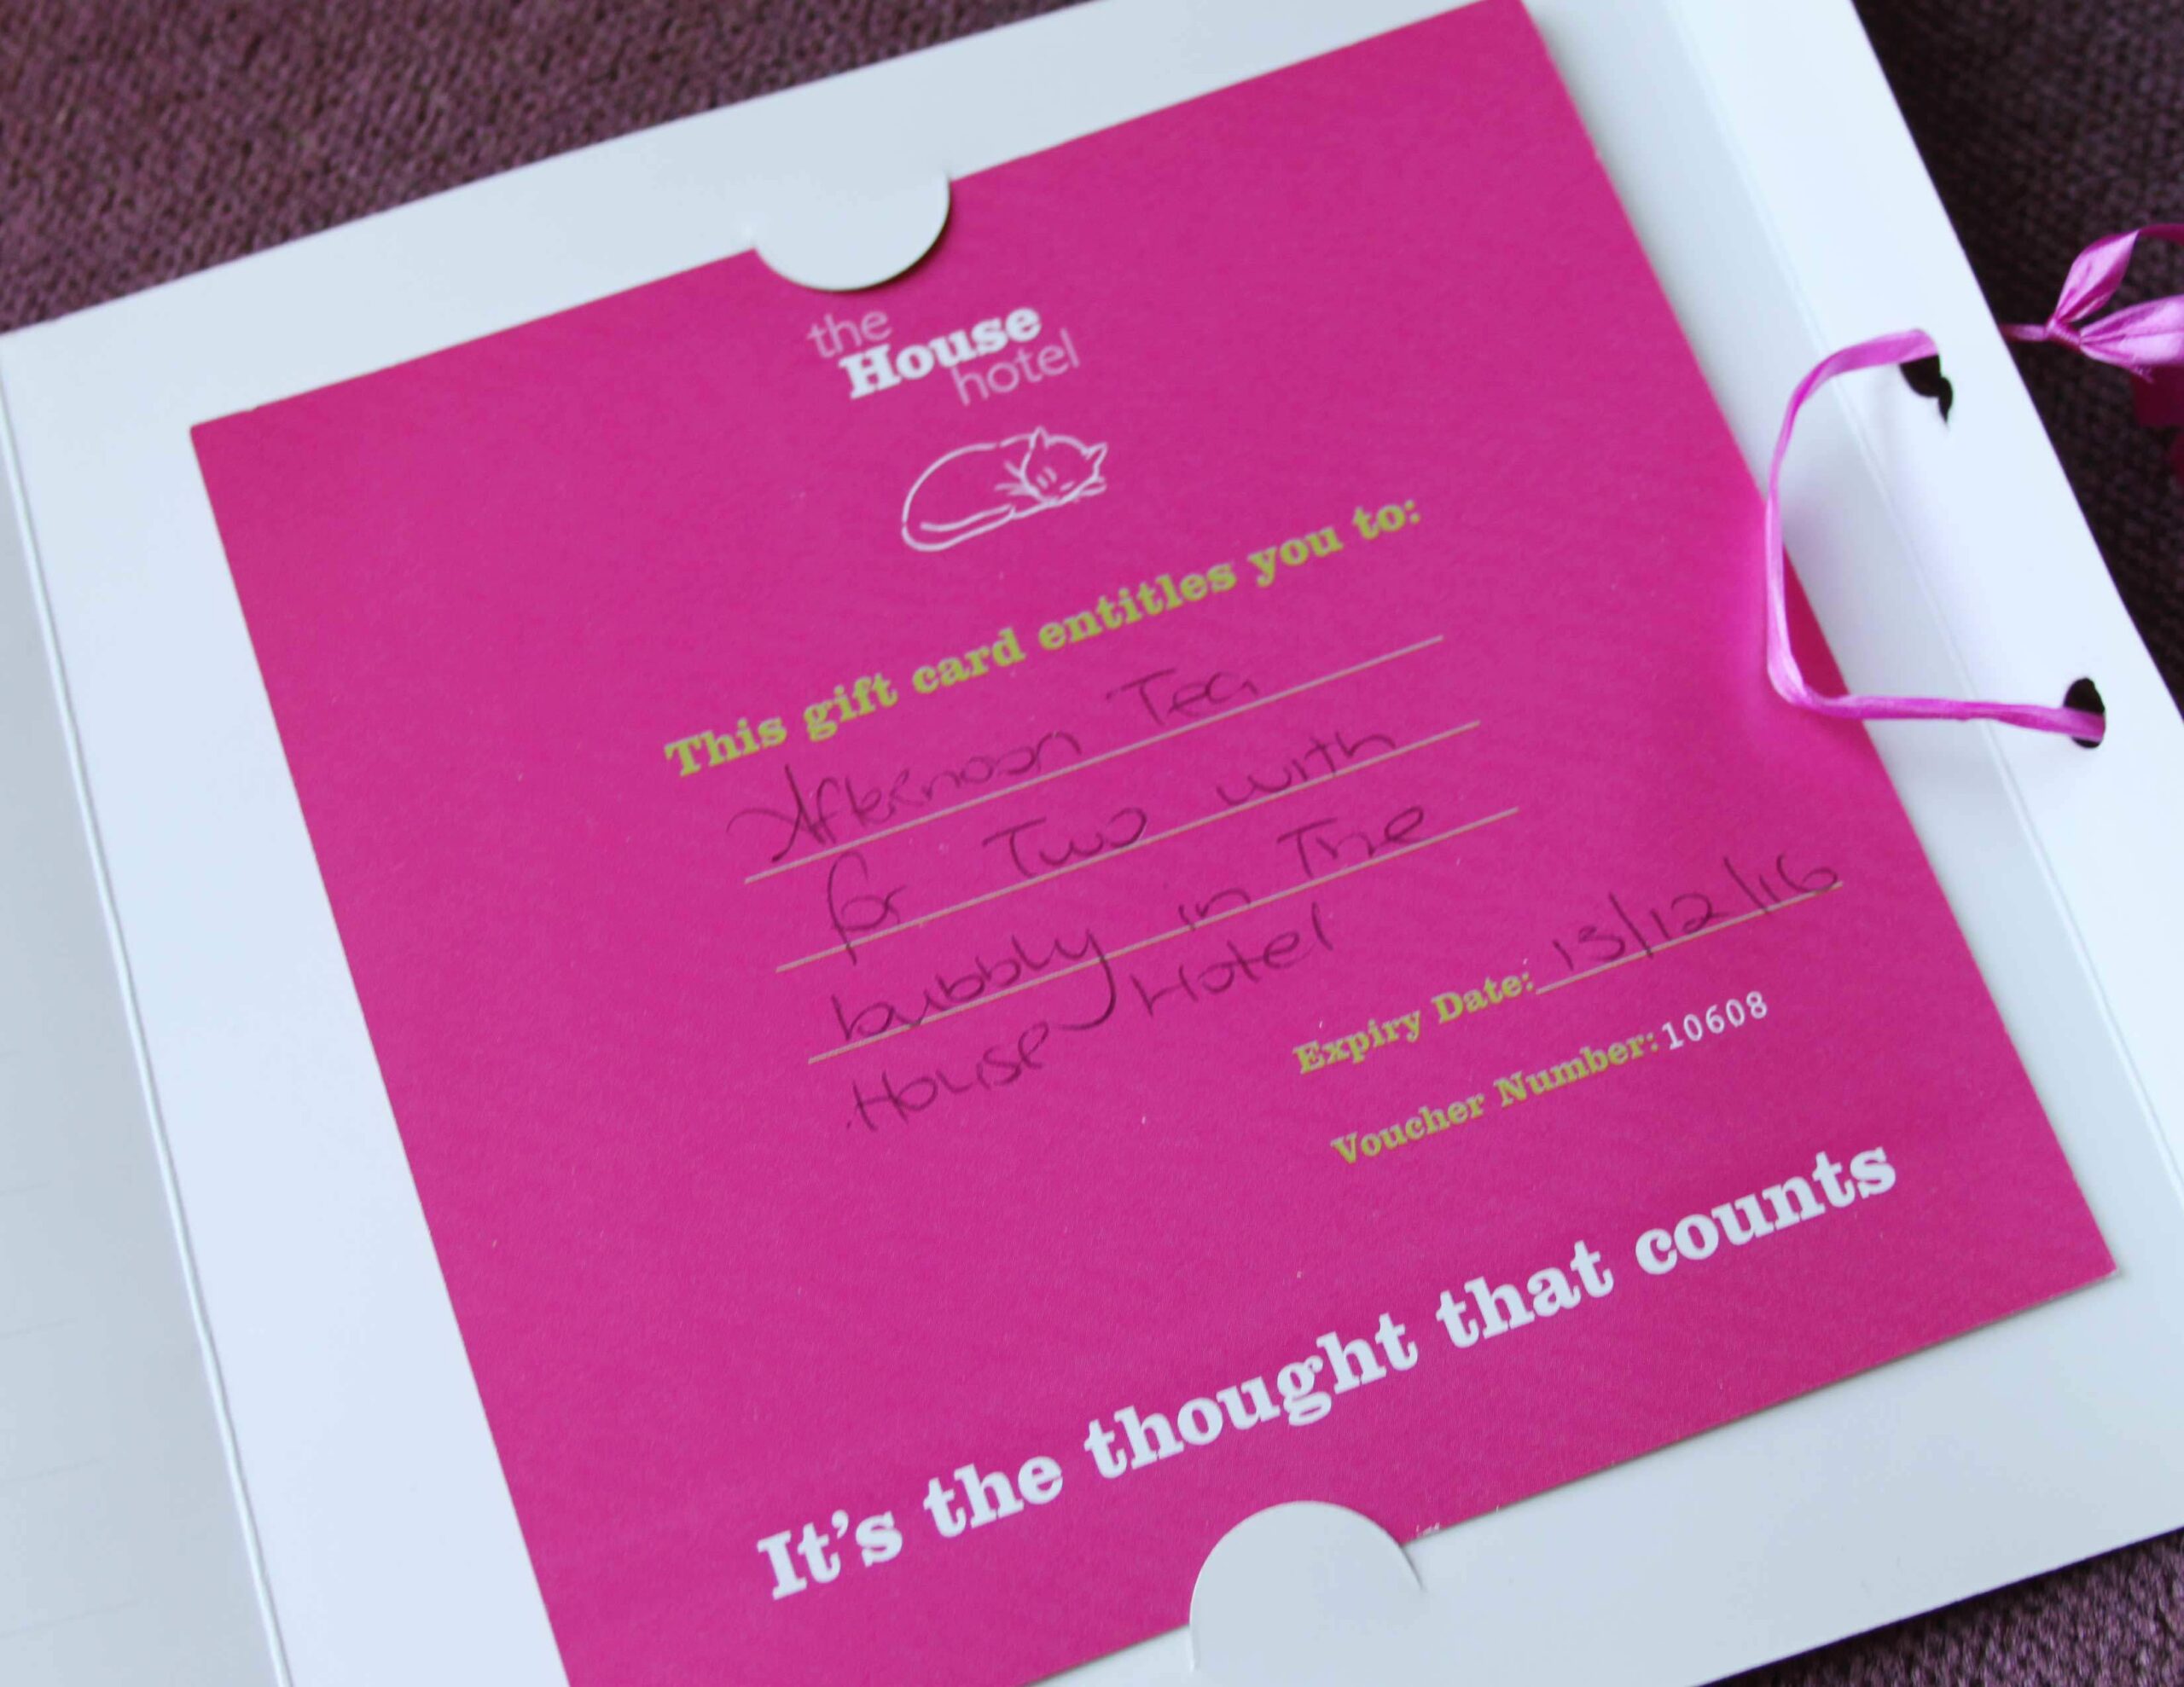 the
House
hotel
This gift card entitles you to:
Afternoon Tea
for Two with
bubbly in The
House Hotel
Expiry Date: 13/12/16
Voucher Number: 10608
It's the thought that counts